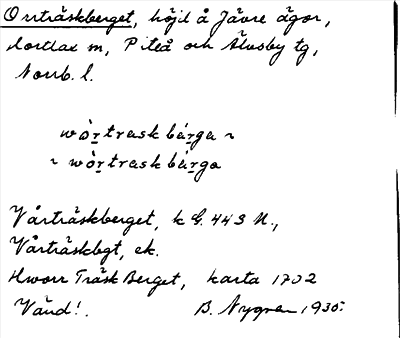 Orrträskberget, höjd å Jävre ägor,
Hortlax sn, Piteå och Älvsby tg,
Norrb. l.
wòrtraskbárga ~
~ wòrtraskbárga
Vårträskberget, k G. 443 N.,
Vårträskbgt, ek.
Hworr Träsk Berget, karta 1702
Vänd!. B. Nygren 1935.